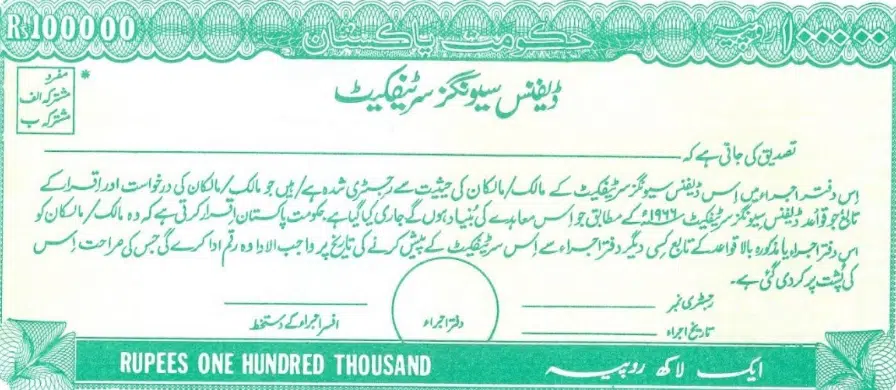 Rs100000 حکومت پاکستان ۱۰۰۰۰۰ روپیہ
* مفرد
مشترکہ الف
مشترکہ ب
ڈیفنس سیونگز سرٹیفکیٹ
تصدیق کی جاتی ہے کہ
اِس دفترِ اجراء میں اِس ڈیفنس سیونگز سرٹیفکیٹ کے مالک/مالکان کی حیثیت سے رجسٹری شدہ ہے/ہیں جو مالک/مالکان کی درخواست اور اقرار کے
تابع جو قواعد ڈیفنس سیونگز سرٹیفکیٹ ۱۹۶۶ء کے مطابق جو اس معاہدے کی بُنیاد ہوں گے جاری کیا گیا ہے۔ حکومت پاکستان اقرار کرتی ہے کہ وہ مالک/مالکان کو
اس دفتر اجراء یا مذکورہ بالا قواعد کے تابع کسی دیگر دفتر اجراء سے اِس سرٹیفکیٹ کے پیش کرنے کی تاریخ پر واجب الادا وہ رقم ادا کرے گی جس کی صراحت اِس
کی پُشت پر کردی گئی ہے۔
رجسٹری نمبر
تاریخ اجراء
دفتر اجراء
افسر اجراء کے دستخط
RUPEES ONE HUNDRED THOUSAND ایک لاکھ روپیہ